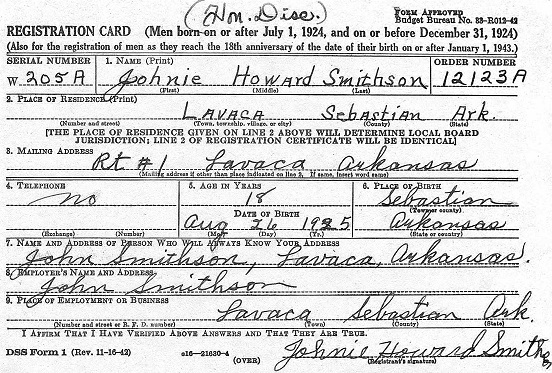 (Hon. Disc.)
FORM APPROVED
Budget Bureau No. 33-R012-42
REGISTRATION CARD (Men born on or after July 1, 1924, and on or before December 31, 1924)
(Also for the registration of men as they reach the 18th anniversary of the date of their birth on or after January 1, 1943.)
SERIAL NUMBER 1. NAME (Print) ORDER NUMBER
W 205A Johnie Howard Smithson 12123A
(First) (Middle) (Last)
2. PLACE OF RESIDENCE (Print)
LAVACA Sebastian Ark.
(Number and street) (Town, township, village, or city) (County) (State)
[THE PLACE OF RESIDENCE GIVEN ON LINE 2 ABOVE WILL DETERMINE LOCAL BOARD
JURISDICTION; LINE 2 OF REGISTRATION CERTIFICATE WILL BE IDENTICAL]
3. MAILING ADDRESS
Rt #1 Lavaca Arkansas
(Mailing address if other than place indicated on line 2. If same, insert word same)
4. TELEPHONE 5. AGE IN YEARS 6. PLACE OF BIRTH
no 18 Sebastian
(Town or county)
DATE OF BIRTH
Aug 26 1925 Arkansas
(Exchange) (Number) (Mo.) (Day) (Yr.) (State or country)
7. NAME AND ADDRESS OF PERSON WHO WILL ALWAYS KNOW YOUR ADDRESS
John Smithson, Lavaca, Arkansas.
8. EMPLOYER'S NAME AND ADDRESS
John Smithson
9. PLACE OF EMPLOYMENT OR BUSINESS
Lavaca Sebastian Ark.
(Number and street or R. F. D. number) (Town) (County) (State)
I AFFIRM THAT I HAVE VERIFIED ABOVE ANSWERS AND THAT THEY ARE TRUE.
DSS Form 1 (Rev. 11-16-42) c16—21630-4 (OVER) Johnie Howard Smithson
(Registrant's signature)